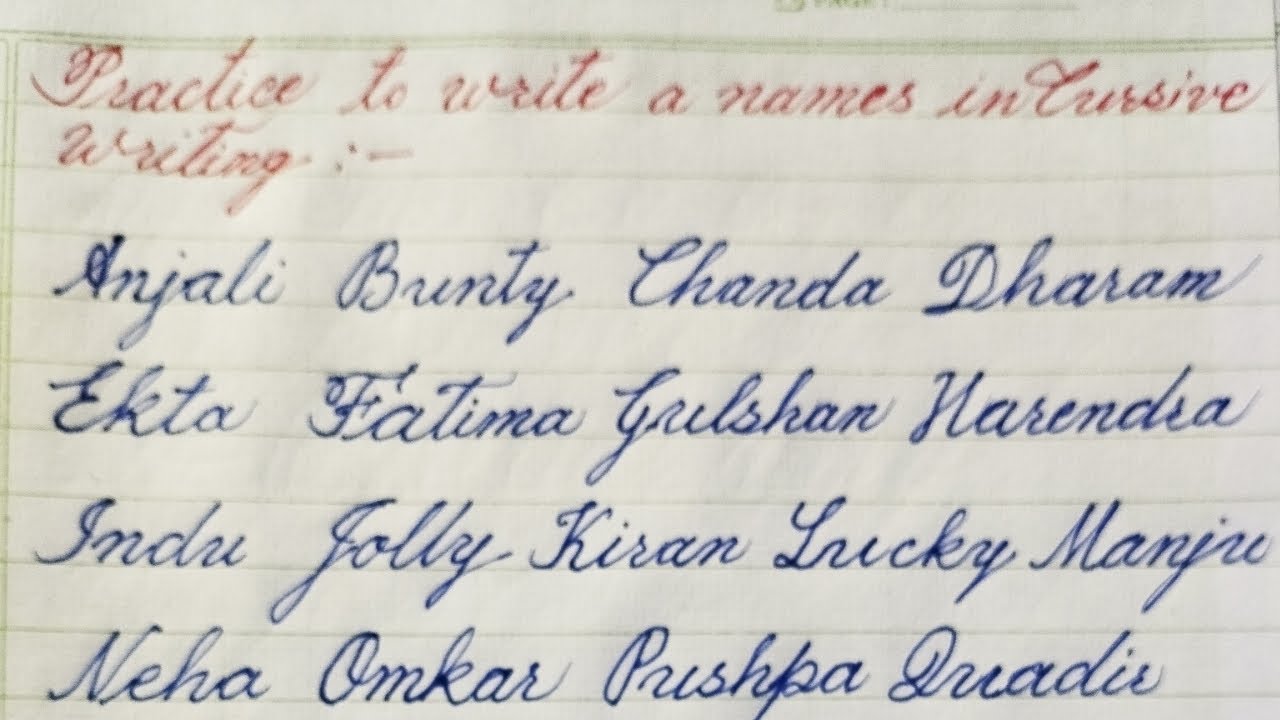 PAGE:
Practice to write a names in Cursive
writing :-
Anjali Bunty Chanda Dharam
Ekta Fatima Gulshan Harendra
Indu Jolly Kiran Lucky Manju
Neha Omkar Pushpa Quadir